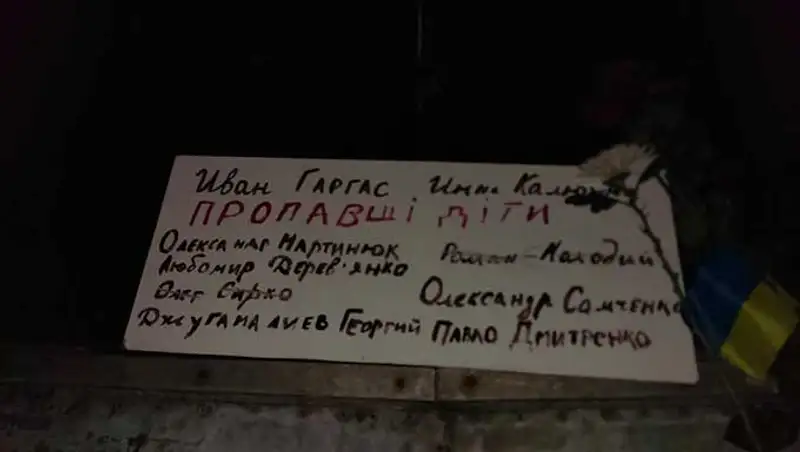 Иван Гаргас Инна
ПРОПАВШІ ДІТИ
Олександр Мартинюк Роман
Любомир Дерев'янко
Олег Сирко Олександр Самченко
Джугамалиев Георгий Павло Дмитренко